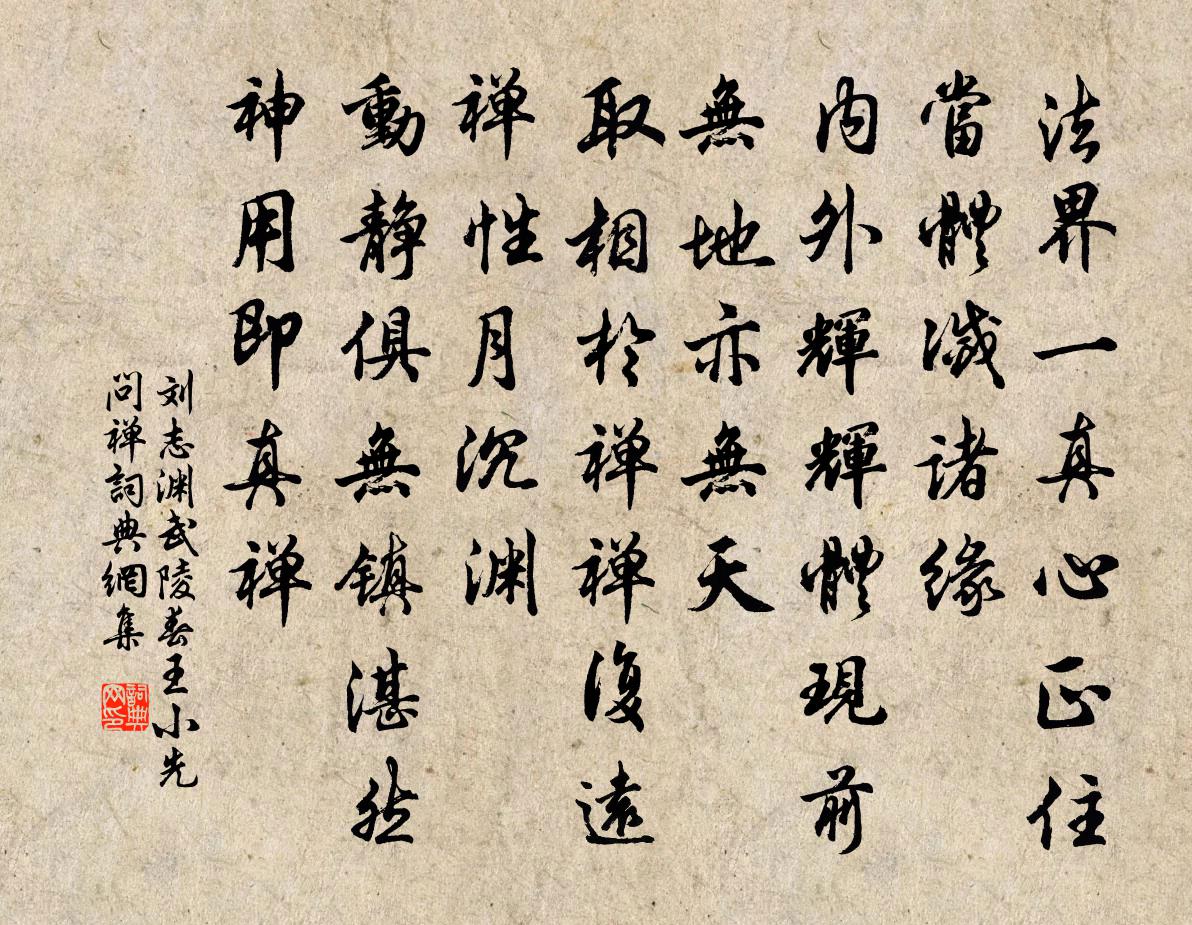 法界一真心正住
當體滅諸緣
内外輝輝體現前
無地亦無天
取相於禅禅復遠
禅性月沉渊
動静俱無镇湛然
神用即真禅
刘志渊武陵春王小先
问禅詞典網集
詞典网印